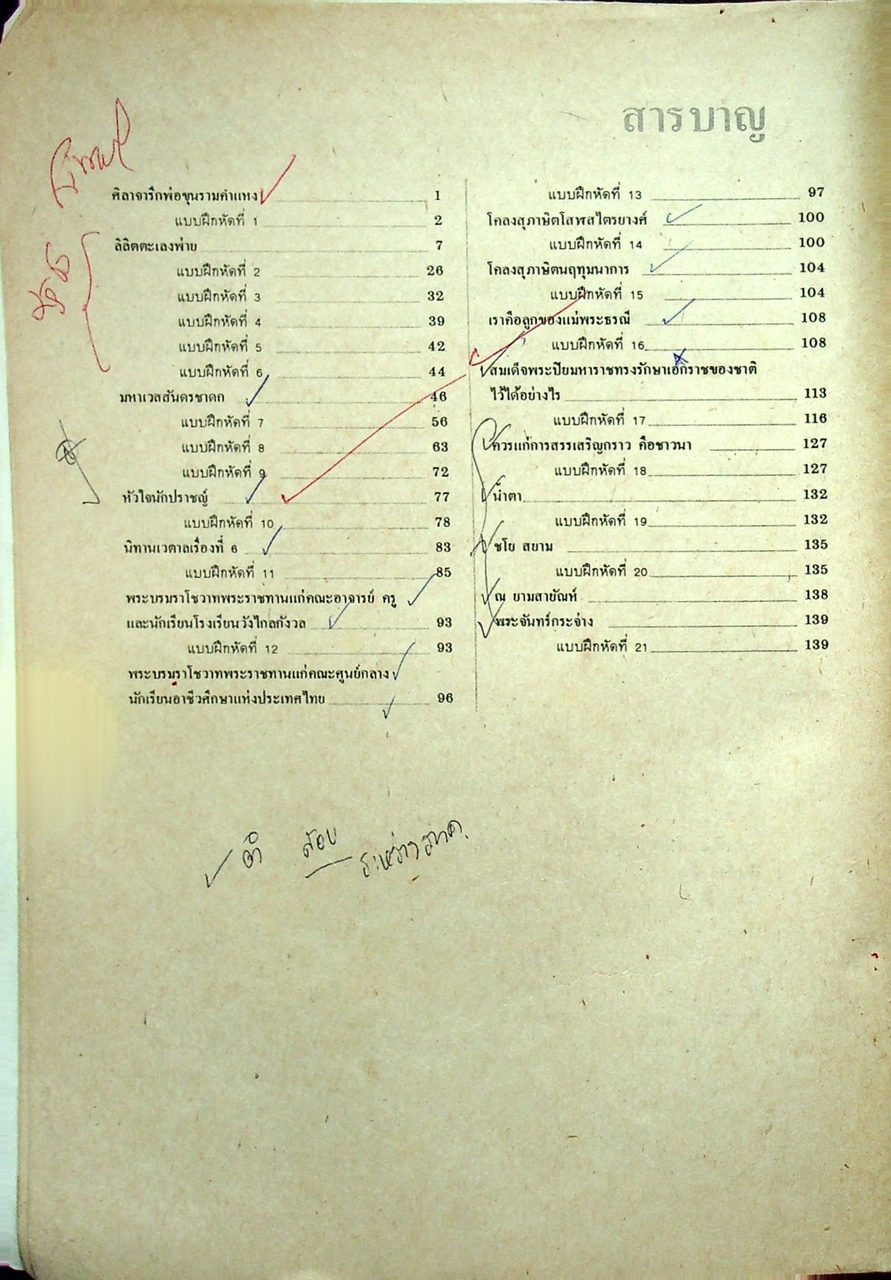 สารบาญ
ศิลาจารึกพ่อขุนรามคำแหง 1
แบบฝึกหัดที่ 1 2
ลิลิตตะเลงพ่าย 7
แบบฝึกหัดที่ 2 26
แบบฝึกหัดที่ 3 32
แบบฝึกหัดที่ 4 39
แบบฝึกหัดที่ 5 42
แบบฝึกหัดที่ 6 44
มหาเวสสันดรชาดก 46
แบบฝึกหัดที่ 7 56
แบบฝึกหัดที่ 8 63
แบบฝึกหัดที่ 9 72
หัวใจนักปราชญ์ 77
แบบฝึกหัดที่ 10 78
นิทานเวตาลเรื่องที่ 6 83
แบบฝึกหัดที่ 11 85
พระบรมราโชวาทพระราชทานแก่คณะอาจารย์ ครู
และนักเรียนโรงเรียนวังไกลกังวล 93
แบบฝึกหัดที่ 12 93
พระบรมราโชวาทพระราชทานแก่คณะศูนย์กลาง
นักเรียนอาชีวศึกษาแห่งประเทศไทย 96
แบบฝึกหัดที่ 13 97
โคลงสุภาษิตโสฬสไตรยางศ์ 100
แบบฝึกหัดที่ 14 100
โคลงสุภาษิตนฤทุมนาการ 104
แบบฝึกหัดที่ 15 104
เราคือลูกของแม่พระธรณี 108
แบบฝึกหัดที่ 16 108
สมเด็จพระปิยมหาราชทรงรักษาเอกราชของชาติ
ไว้ได้อย่างไร 113
แบบฝึกหัดที่ 17 116
ควรแก่การสรรเสริญกราว คือชาวนา 127
แบบฝึกหัดที่ 18 127
น้ำตา 132
แบบฝึกหัดที่ 19 132
ชโย สยาม 135
แบบฝึกหัดที่ 20 135
ณ ยามสายัณห์ 138
พระจันทร์กระจ่าง 139
แบบฝึกหัดที่ 21 139
สอบ